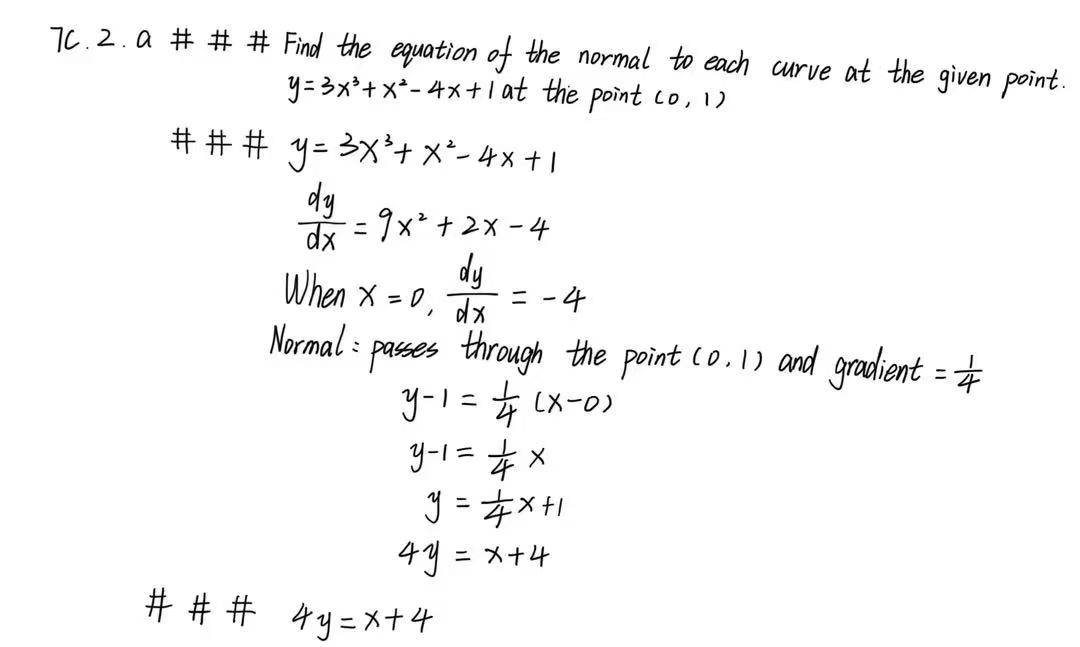 7C.2.a # # # Find the equation of the normal to each curve at the given point.
y=3x³+x²-4x+1 at the point (0,1)
# # # y=3x³+x²-4x+1
dy/dx = 9x²+2x-4
When x=0, dy/dx = -4
Normal: passes through the point (0,1) and gradient = 1/4
y-1 = 1/4 (x-0)
y-1 = 1/4 x
y = 1/4 x+1
4y = x+4
# # # 4y=x+4